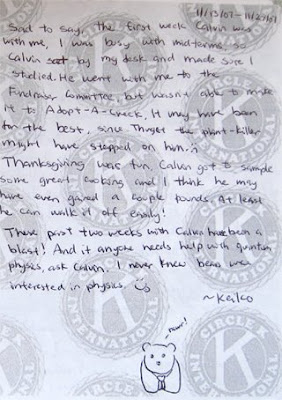 11/13/07 - 11/27/07
Sad to say, the first week Calvin was
with me, I was busy with midterms so
Calvin sat by my desk and made sure I
studied. He went with me to the
Fundraiser Committee, but wasn't able to make
it to Adopt-A-Creek. It may have been
for the best, since the plant-killer
might have stepped on him. :)
Thanksgiving was fun. Calvin got to sample
some great cooking and I think he may
have even gained a couple pounds. At least
he can walk it off easily!
These past two weeks with Calvin have been a
blast! And if anyone needs help with quantum
physics, ask Calvin. I never knew bears were
interested in physics. :)
~Keiko
Rawr!
CIRCLE K
INTERNATIONAL
K